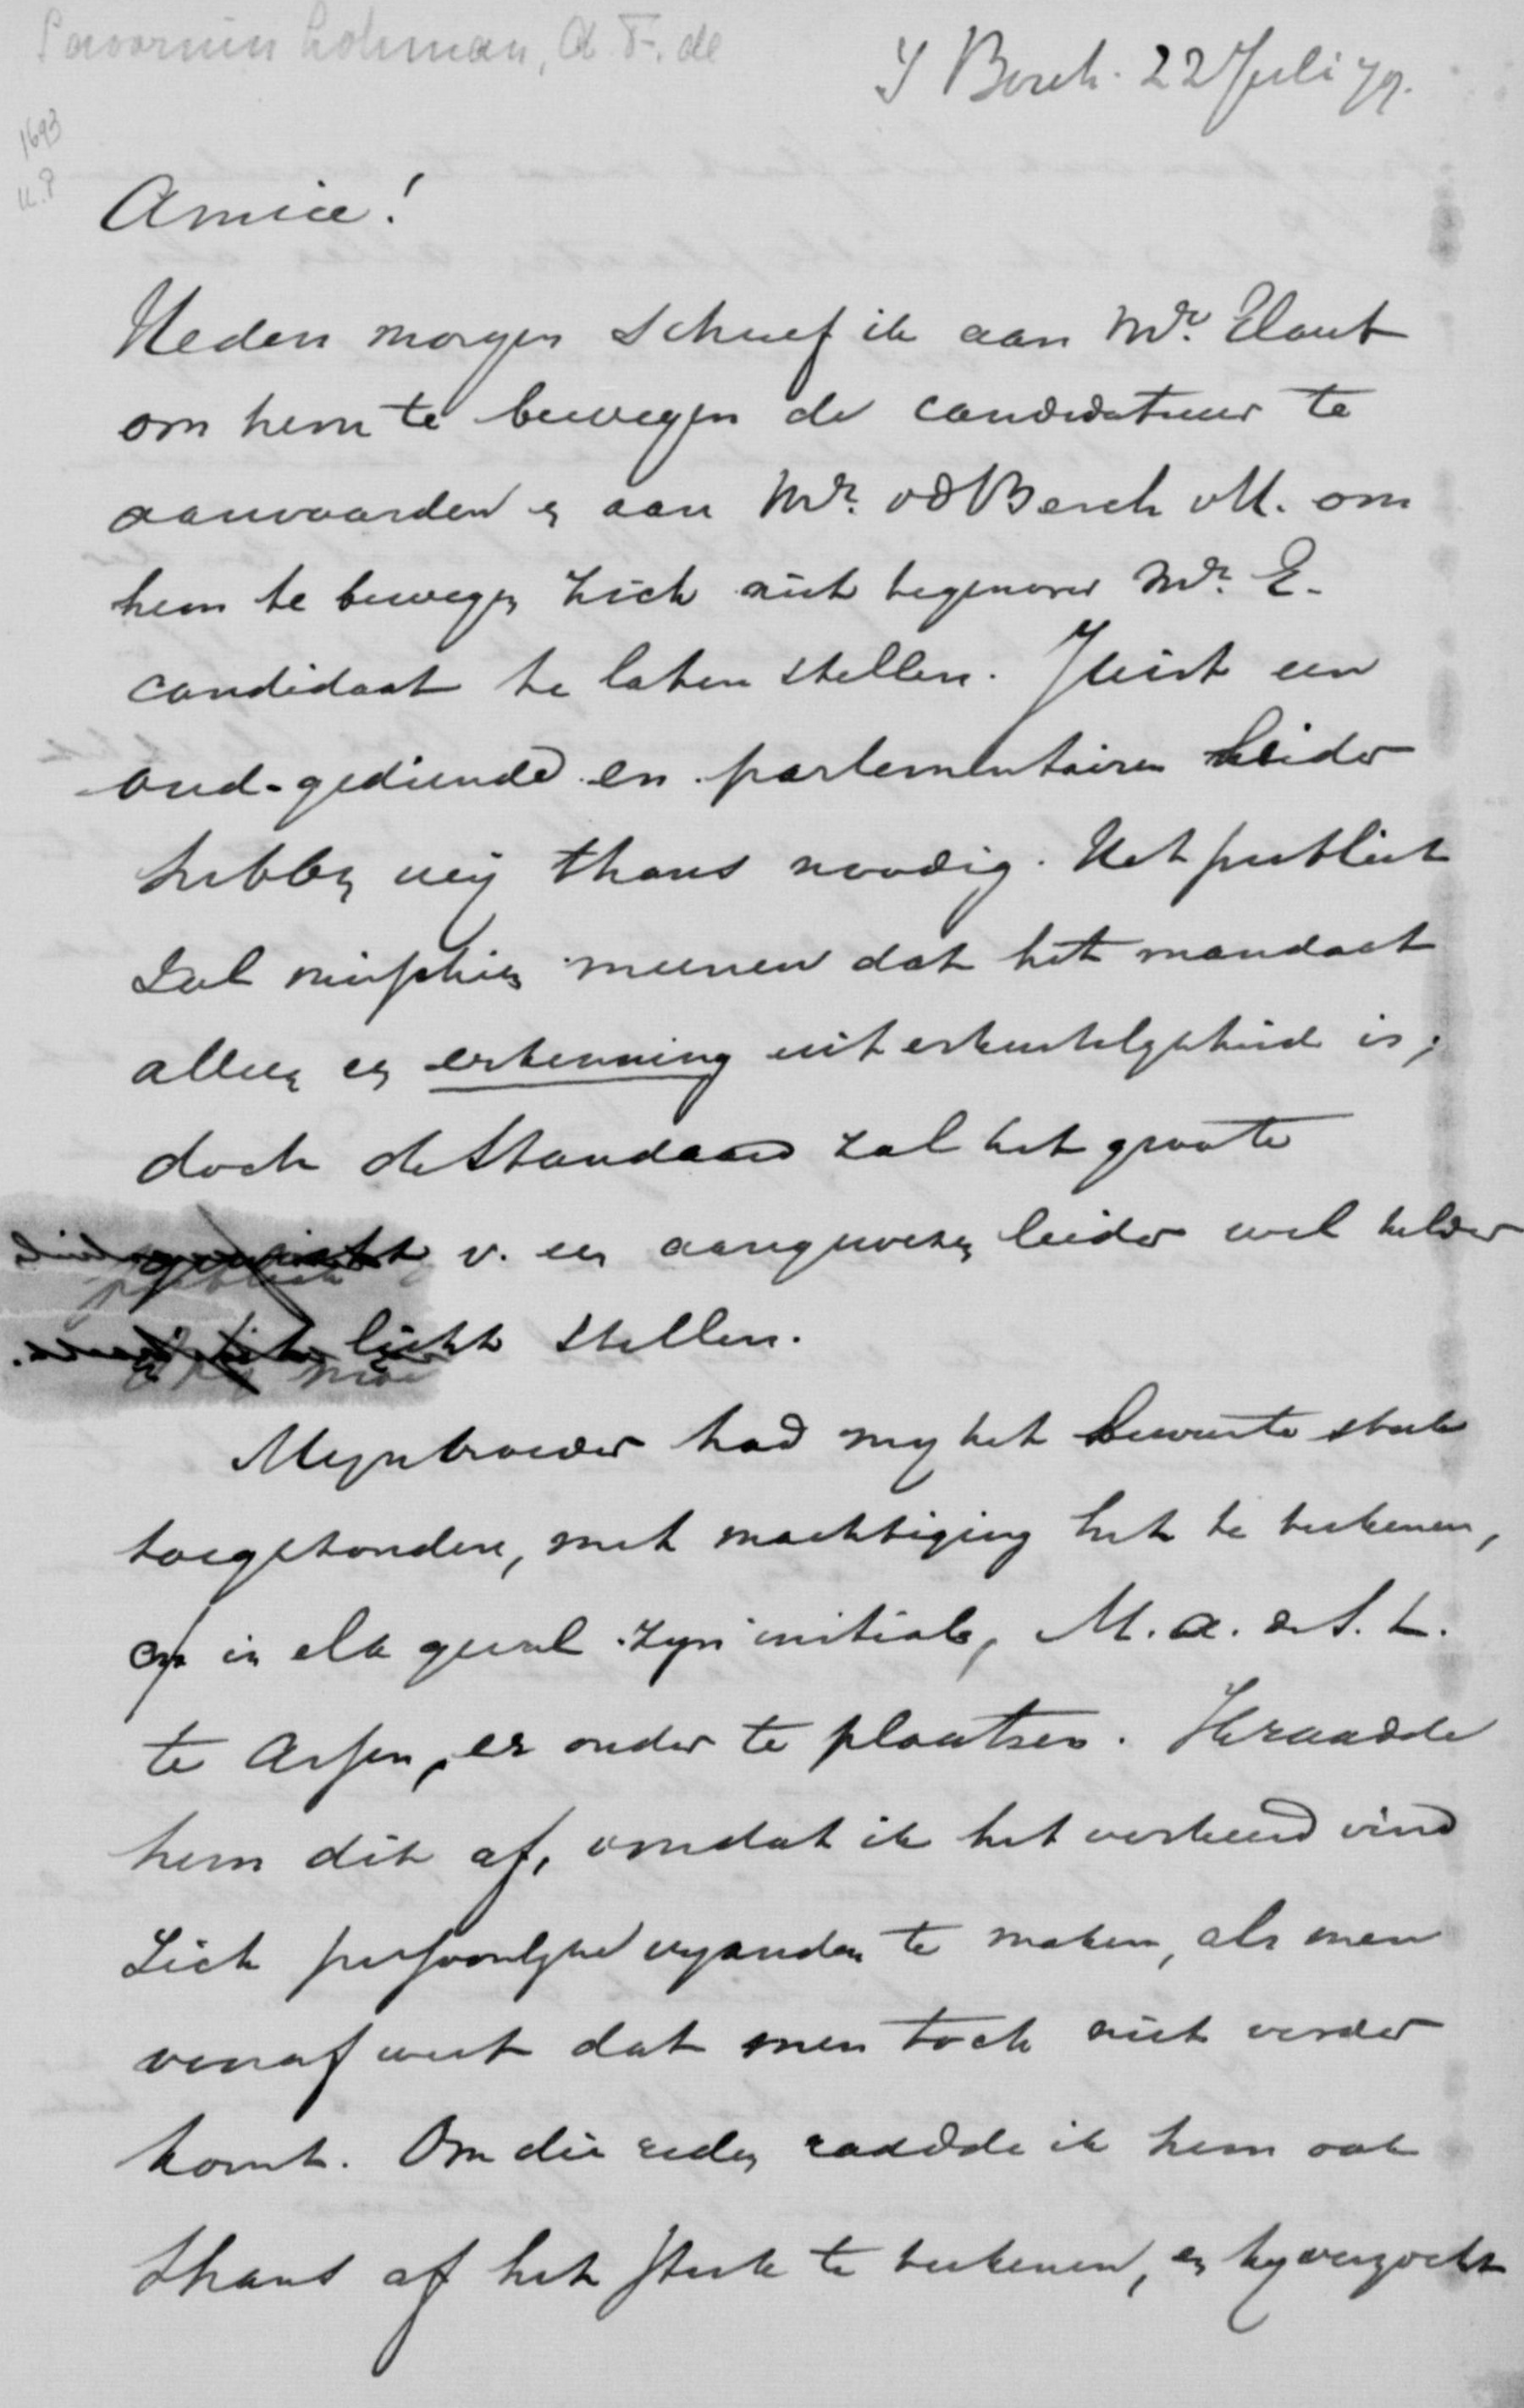 Savornin Lohman, A. F. de
'S Bosch. 22 Juli 79.
1693
K.P
Amice!
Heden morgen schreef ik aan Mr. Elout
om hem te bewegen de candidatuur te
aanvaarden en aan Mr. vd Berch v H. om
hem te bewegen zich niet tegenover Mr. E.
candidaat te laten stellen. Juist een
oud-gediende en parlementairen leider
hebben wij thans noodig. Het publiek
zal misschien meenen dat het mandaat
alleen een erkenning uit erkentelijkheid is;
doch de Standaard zal het groote
v. een aangewezen leider wel helder
licht stellen.
Mijn broeder had mij het bewuste stuk
toegezonden, met machtiging het te teekenen,
en in elk geval zijn initialen, M. A. d. S. L.
te Assen, er onder te plaatsen. Ik raadde
hem dit af, omdat ik het verkeerd vind
zich persoonlijke vijanden te maken, als men
vooraf weet dat men toch niet verder
komt. Om die reden raadde ik hem ook
thans af het stuk te teekenen, en hij verzocht